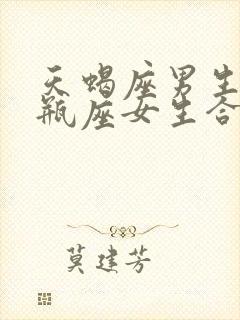 天蝎座男生
瓶座女生合
莫建芳